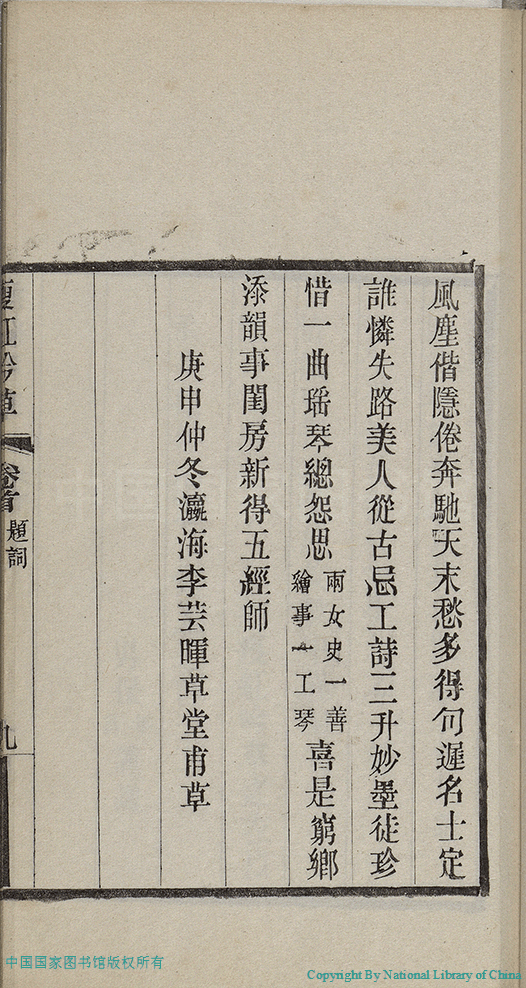 風塵偕隱倦奔馳天末愁多得句遲名士定
誰憐失路美人從古忌工詩三升妙墨徒珍
惜一曲瑶琴總怨思
兩女史一善
繪事一工琴
喜是窮鄉
添韻事閨房新得五經師
庚申仲冬瀛海李芸暉草堂甫草
卷首
題詞
九
中国国家图书馆版权所有
Copyright By National Library of China